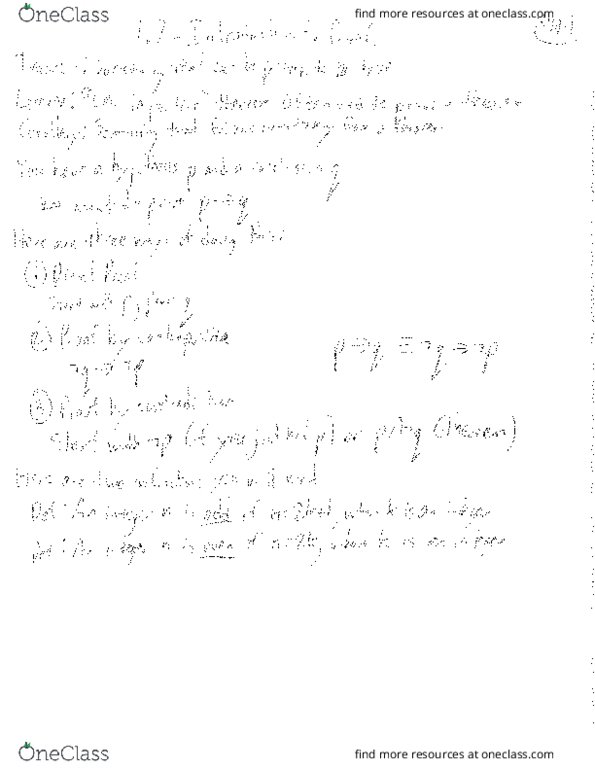 OneClass
find more resources at oneclass.com
1.7 - Introduction to Proofs
Theorem: something that can be proven to be true
Lemma: "Theorem used to prove a theorem
Corollary: Something that follows from a theorem
You have a hypothesis p and a conclusion q
You want to prove p→q
Here are three ways of doing Proofs
(1) Direct Proof
Start with p, prove q
(2) Proof by contrapositive
¬q → ¬p
p→q ≡ ¬q→¬p
(3) Proof by contradiction
Start with ¬p (if you just have p) or p∧¬q (Theorem)
Here are two definitions you will need
Def: An integer n is odd if n=2k+1, where k is an integer
Def: An integer n is even if n=2k, where k is an integer
OneClass
find more resources at oneclass.com